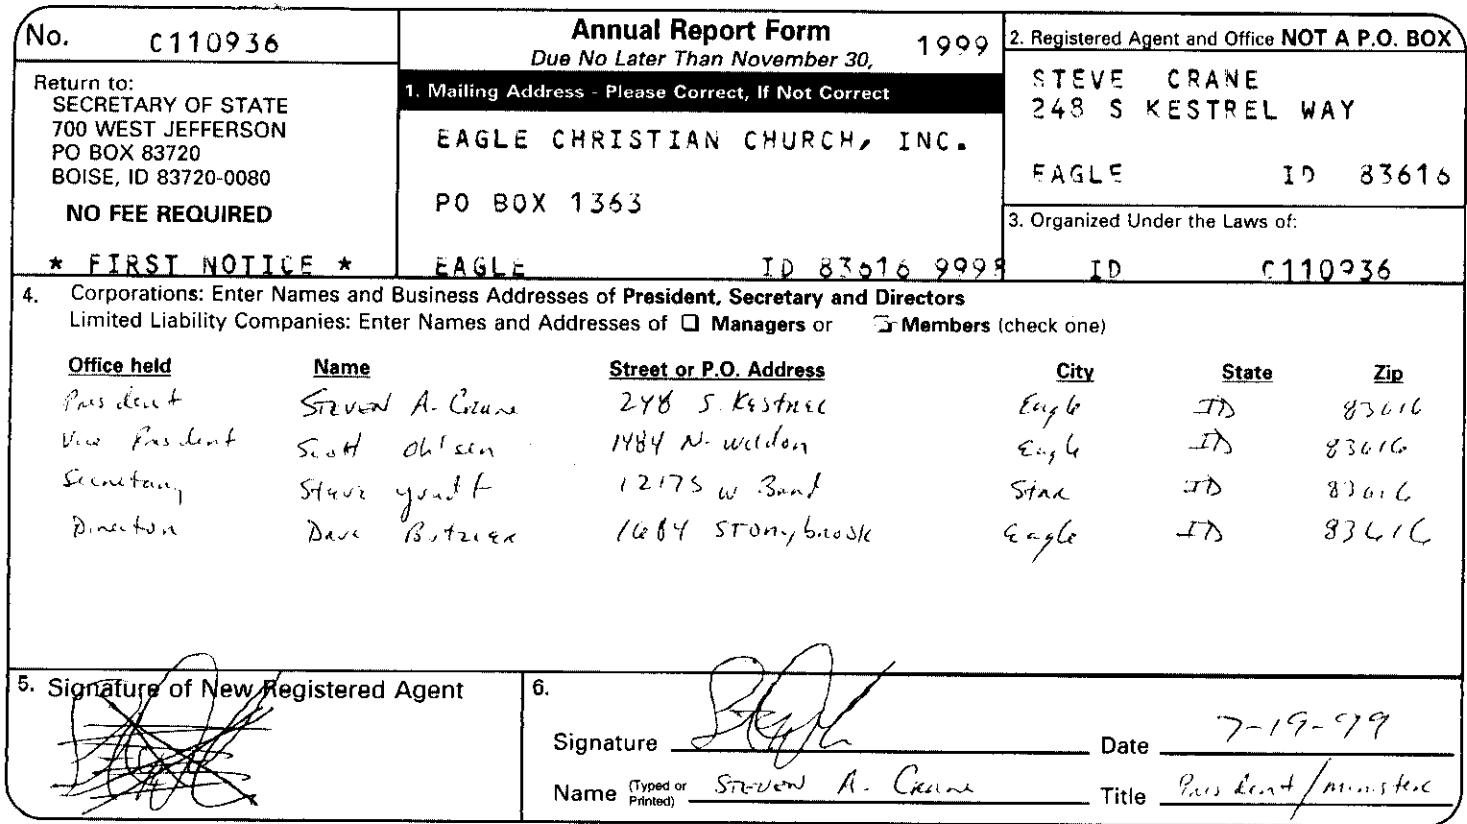 No. C110936
Return to:
SECRETARY OF STATE
700 WEST JEFFERSON
PO BOX 83720
BOISE, ID 83720-0080
NO FEE REQUIRED
* FIRST NOTICE *
Annual Report Form 1999
Due No Later Than November 30,
1. Mailing Address - Please Correct, If Not Correct
EAGLE CHRISTIAN CHURCH, INC.
PO BOX 1363
EAGLE ID 83616 9998
2. Registered Agent and Office NOT A P.O. BOX
STEVE CRANE
248 S KESTREL WAY
EAGLE ID 83616
3. Organized Under the Laws of:
ID C110936
4. Corporations: Enter Names and Business Addresses of President, Secretary and Directors
Limited Liability Companies: Enter Names and Addresses of Managers or Members (check one)
Office held Name Street or P.O. Address City State Zip
President Steven A. Crane 248 S. Kestrel Eagle ID 83616
Vice President Scott Ohlsen 1484 N. Weldon Eagle ID 83616
Secretary Steve 12175 W Star ID 83616
Director Dave 1684 Stonybrook Eagle ID 83616
5. Signature of New Registered Agent
6.
Signature Date 7-19-99
Name (Typed or Printed) Steven A. Crane Title President/minister